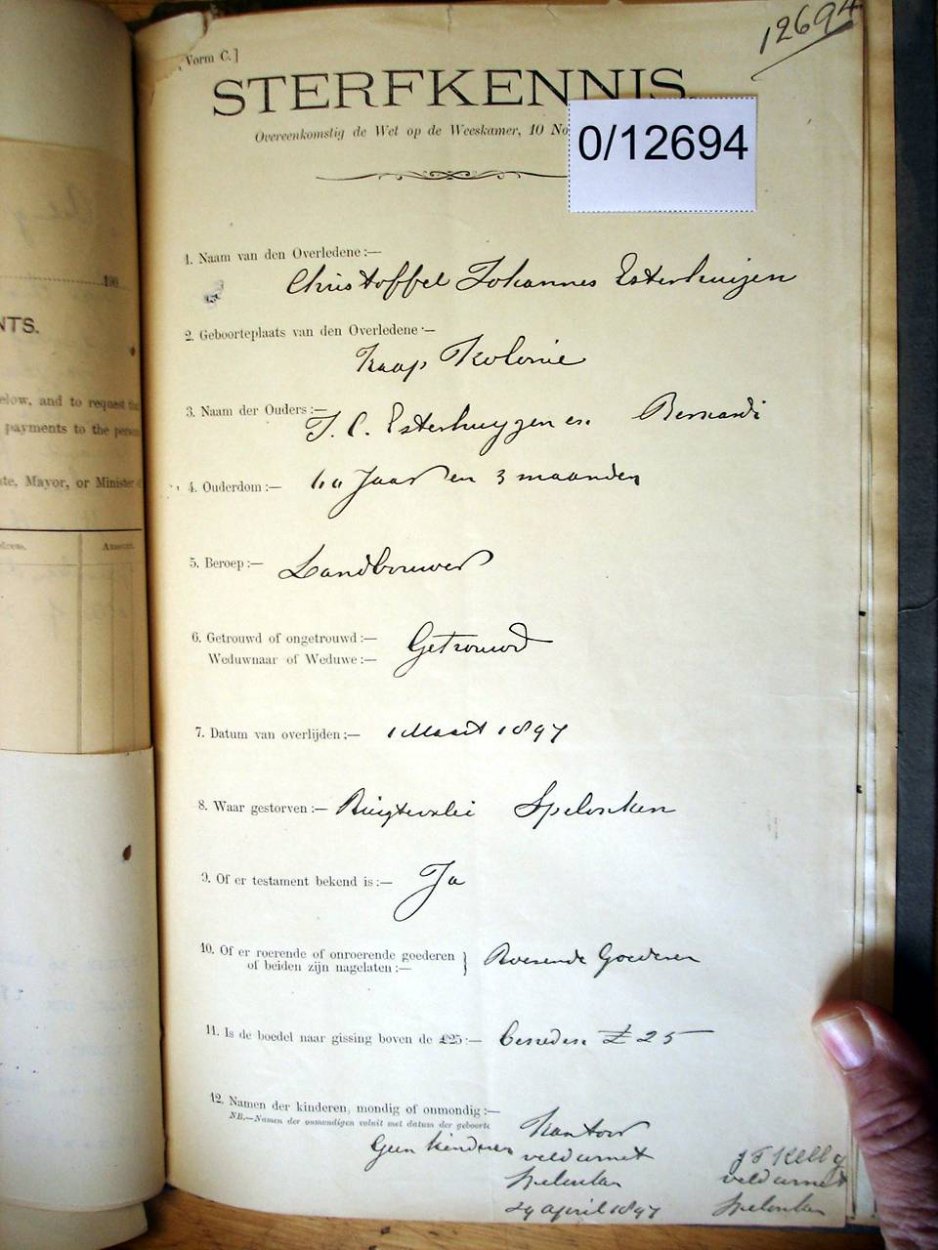 Vorm C.]
12694
STERFKENNIS.
Overeenkomstig de Wet op de Weeskamer, 10 No
0/12694
1. Naam van den Overledene:—
Christoffel Johannes Esterhuijzen
2. Geboorteplaats van den Overledene:—
Kaap Kolonie
3. Naam der Ouders:—
J. C. Esterhuyzen en Bernardi
4. Ouderdom:— Jaar en 3 maanden
5. Beroep:— Landbouwer
6. Getrouwd of ongetrouwd:— Getrouwd
Weduwnaar of Weduwe:—
7. Datum van overlijden:— 1 Maart 1897
8. Waar gestorven:— Ruigtevlei Spelonken
9. Of er testament bekend is:— Ja
10. Of er roerende of onroerende goederen
of beiden zijn nagelaten:— Roerende Goederen
11. Is de boedel naar gissing boven de £25:— Beneden £ 25
12. Namen der kinderen, mondig of onmondig:—
NB.—Namen der onmondigen voluit met datum der geboorte
Geen kinderen
Kantoor
veldcornet
Spelonken
29 April 1897
J F Kelly
veldcornet
Spelonken
190
NTS.
elow, and to request the
payments to the person
te, Mayor, or Minister of
Amount.